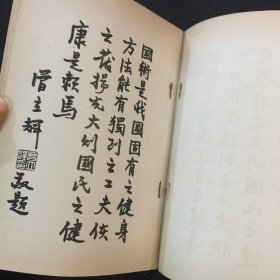 國術是我國固有之健身
方法能有獨到之工夫使
之發揚光大則國民之健
康是賴焉
管主輝
敬題